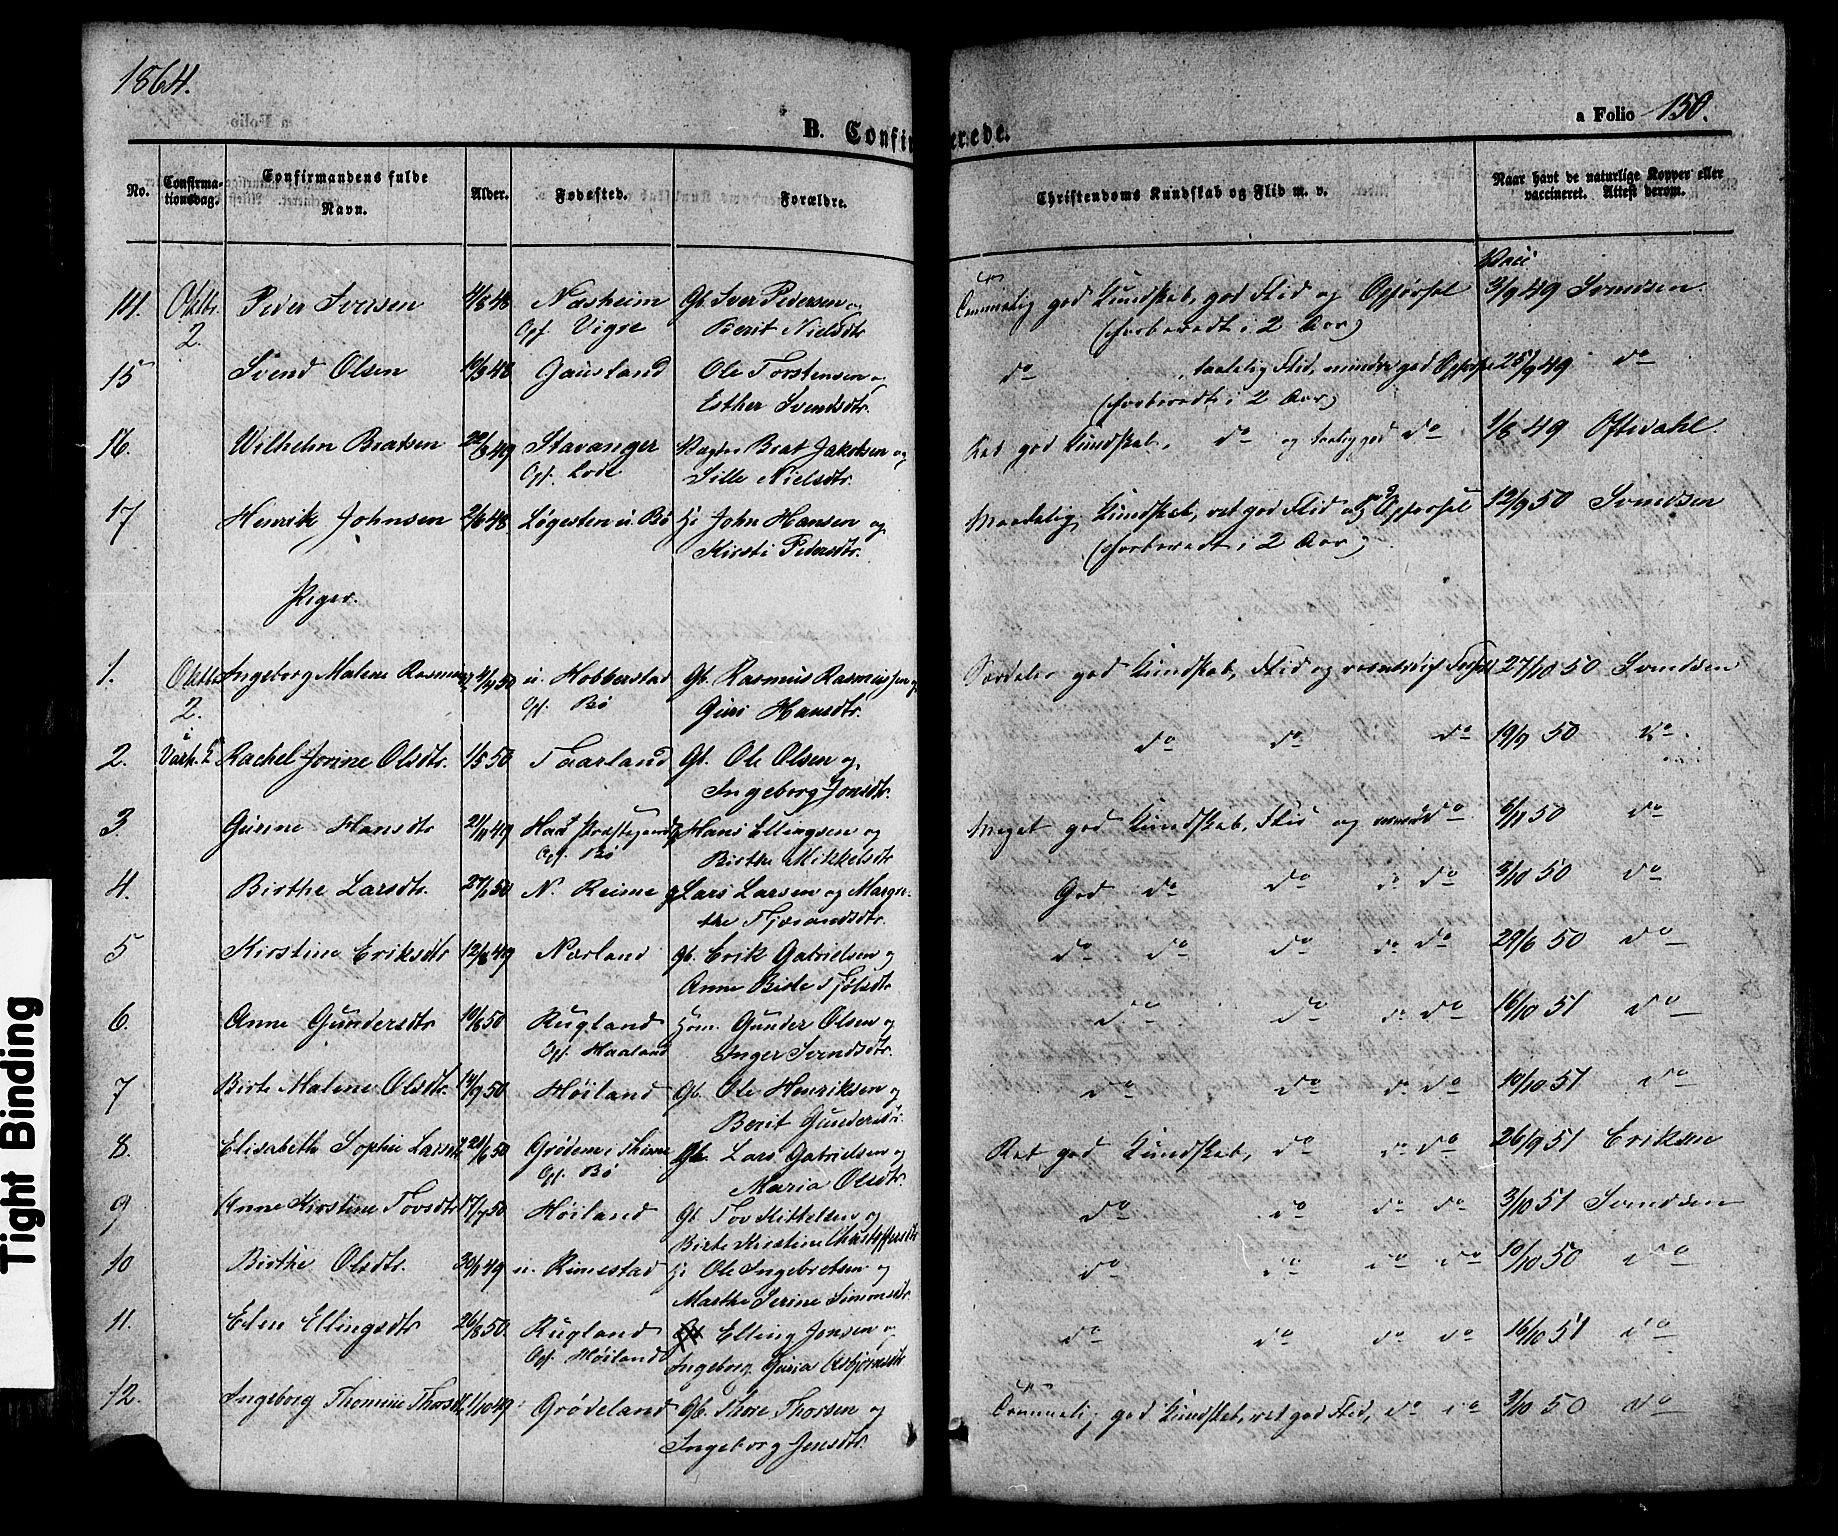 1864.
B. Confirmerede.
a Folio 150.
No. Confirmationsdag. Confirmandens fulde Navn. Alder. Fødested. Forældre. Christendoms Kundskab og Flid m. v. Naar havt de naturlige Kopper eller vaccineret. Attest derom.
Vacc
14. Oktbr. Peder Iversen 4/8 48 Næsheim Gb. Iver Pedersen og Temmelig god Kundskab, god Flid og Opførsel 3/9 49 Svendsen
2. Opf. Vigre Berit Nielsdtr. (forberedt i 2 Aar)
15 Svend Olsen 10/3 48 Gausland Ole Torstensen og do , taalelig Flid, mindre god Opførsel 25/9 49 do
Esther Svendsdtr. (forberedt i 2 Aar)
16. Wilhelm Beatsen 22/3 49 Stavanger Beat Jakobsen og Ret god Kundskab, do og do 1/8 49 Oftedahl.
Opf. Lode Sille Nielsdtr.
17 Henrik Johnsen 2/6 48. Løgesten u. Bø John Hansen og Maadelig Kundskab, ret god Flid og Opførsel 12/9 50 Svendsen
Kirsti Pedersdtr. (forberedt i 2 Aar)
Piger.
1. Oktbr Ingeborg Malene 4/4 50 u. Hobberstad Gb. Rasmus Rasmussen og Særdeles god Kundskab, Flid og 27/10 50 Svendsen
2. Opf. Bø Guri Hansdtr.
i
2. Varh. K Rachel Jorine Olsdtr. 1/5 50 Taarland Gb. Ole Olsen og do do do 19/9 50 do.
Ingeborg Jonsdtr.
3. Gurine Hansdtr 21/11 49 Haa Præstegaard Hans Ellingsen og Meget god Kundskab, Flid og do 6/11 50 do
Opf. Bø Birthe Mikkelsdtr
4. Birthe Larsdtr. 27/1 50 N. Reime Lars Larsen og Margre- God do do do do 3/10 50 do
the Tjærandsdtr.
5 Kirstine Eriksdtr 12/8 49 Nærland Gb. Erik Gabrielsen og do do do do do 29/6 50 do
Anne Birte Tjølsdtr
6. Anne Gundersdtr 10/8 50 Rugland Huusm. Gunder Olsen og do do do do 16/10 51 do
Opf. Haaland Inger Svendsdtr.
7 Birte Malene Olsdtr. 14/9 50 Høiland Gb. Ole Henriksen og do do do do 10/10 51 do
Berit Gundersdtr.
8. Elisabeth Sophie Larsdtr 21/6 50 Grødem i Thime Gb. Lars Gabrielsen og Ret god Kundskab, do do do 26/9 51 Eriksen
Opf. Bø Maria Olsdtr.
9 Anne Kirstine Tovsdtr 17/7 50 Høiland Gb. Tov Kittelsen og do do do do 3/10 51 Svendsen
Birte Kirstine Christoffersdtr
10 Birthe Olsdtr. 30/1 49 u. Rimestad Ole Ingebretsen og do do do do 10/10 50 do
Marthe Serine Simonsdtr.
11. Elen Ellingsdtr 26/8 50. Rugland Elling Jonsen og do do do do 16/10 51 do
Opf. Høiland Ingeborg Guria Asbjørnsdtr
12. Ingeborg Thomine Thorsdtr 1/10 49 Grødeland Gb. Thore Thorsen og Temmelig god Kundskab, ret god Flid, do do 3/10 50 do
Ingeborg Jonsdtr.
Tight Binding